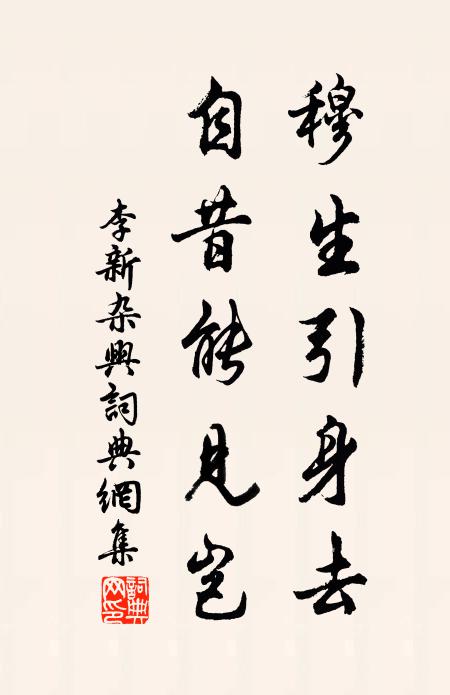 穆生引身去
自昔能見岂
李新杂興詞典網集
詞典網印